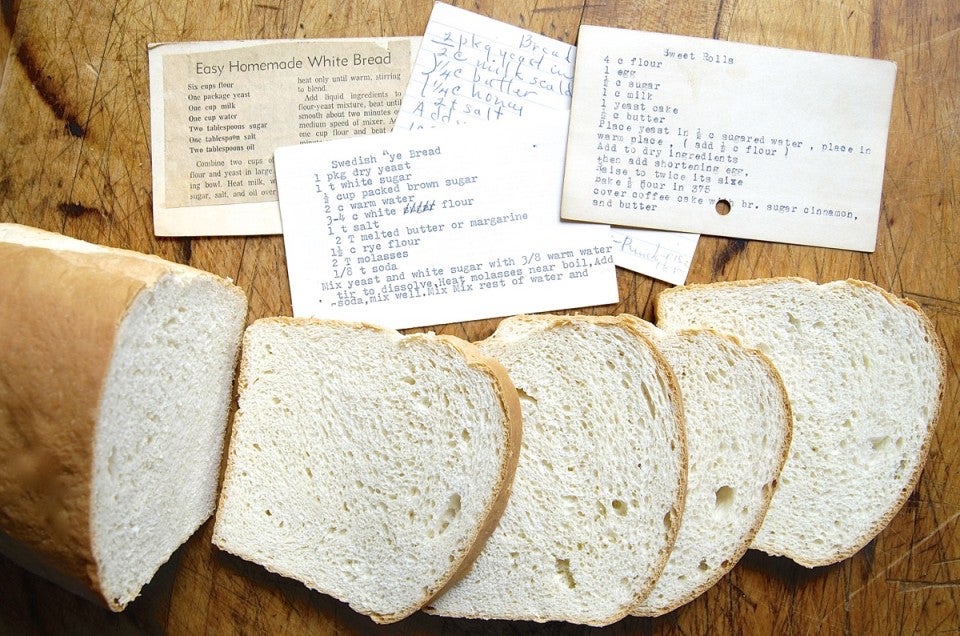 Easy Homemade White Bread
Six cups flour
One package yeast
One cup milk
One cup water
Two tablespoons sugar
One tablespoon salt
Two tablespoons oil
Combine two cups of
flour and yeast in large
ing bowl. Heat milk, w
sugar, salt, and oil over
heat only until warm, stirring
to blend.
Add liquid ingredients to
flour-yeast mixture, beat until
smooth about two minutes o
medium speed of mixer. A
one cup flour and beat
minute
Bread
2 pkg yeast in
2 c milk scald
3/4 c butter
1/4 c honey
2 t salt
Add
Swedish "ye Bread
1 pkg dry yeast
1 t white sugar
cup packed brown sugar
2 c warm water
3-4 c white flour
1 t salt
2 T melted butter or margarine
1½ c rye flour
2 T molasses
1/8 t soda
Mix yeast and white sugar with 3/8 warm water
tir to dissolve,Heat molasses near boil,Add
soda,mix well.Mix Mix rest of water and
Sweet Rolls
4 c flour
1 egg
½ c sugar
1 c milk
1 yeast cake
½ c butter
Place yeast in ½ c sugared water , place in
warm place , ( add ½ c flour )
Add to dry ingredients
then add shortening egg,
Raise to twice its sixe
bake ½ hour in 375
cover coffee cake with br. sugar cinnamon,
and butter